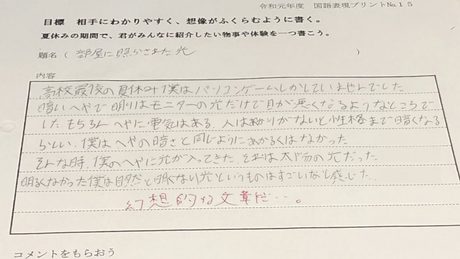 令和元年度 国語表現プリントNo.15
目標 相手にわかりやすく、想像がふくらむように書く。
夏休みの期間で、君がみんなに紹介したい物事や体験を一つ書こう。
題名( 部屋に照らされた光 )
内容
高校最後の夏休み僕はパソコンゲームしかしていませんでした
暗いへやで明りはモニターの光だけで目が悪くなるようなところで
した もちろんへやに電気はある 人は明りがないと性格まで暗くなる
らしい 僕はへやの暗さと同じようにあかるくはなかった
そんな時、僕のへやに光が入ってきた それは太陽の光だった
明るくなかった僕は自然と明るい光というものはすごいなと感じた
幻想的な文章だ…。
コメントをもらおう